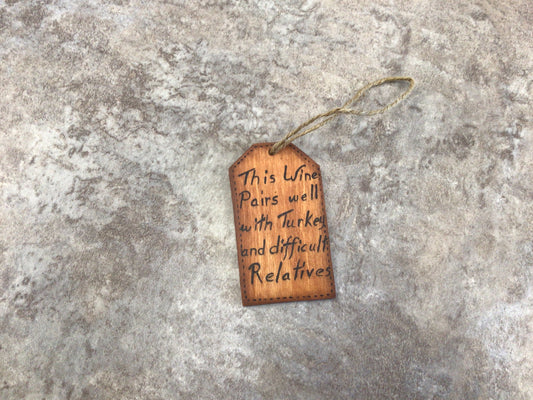 This Wine
Pairs well
with Turkey
and difficult
Relatives